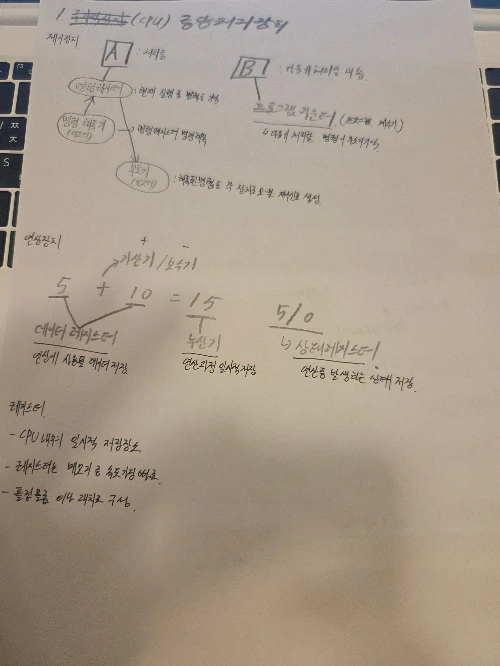 1. (CPU) 중앙처리장치
제어장치
A : 처리중
명령레지스터 : 현재 실행 중 명령을 기억
명령 해독기 (디코더) → 명령레지스터 명령해독
부호기 (인코더) : 해독된 명령을 각 장치로 보낼 제어신호 생성
B : 다음에 처리할 내용
프로그램 카운터 (프로그램 계수기)
↳ 다음에 처리할 명령의 주소기억
연산장치
+ -
가산기 / 보수기
5 + 10 = 15
5/0
데이터 레지스터
연산에 사용될 데이터 저장
누산기
연산의 일시적 저장
↳ 상태레지스터
연산중 발생하는 상태 저장.
레지스터
- CPU 내부의 일시적 저장장소
- 레지스터는 메모리 중 속도가장 빠름.
- 플립플롭 이나 래치로 구성.